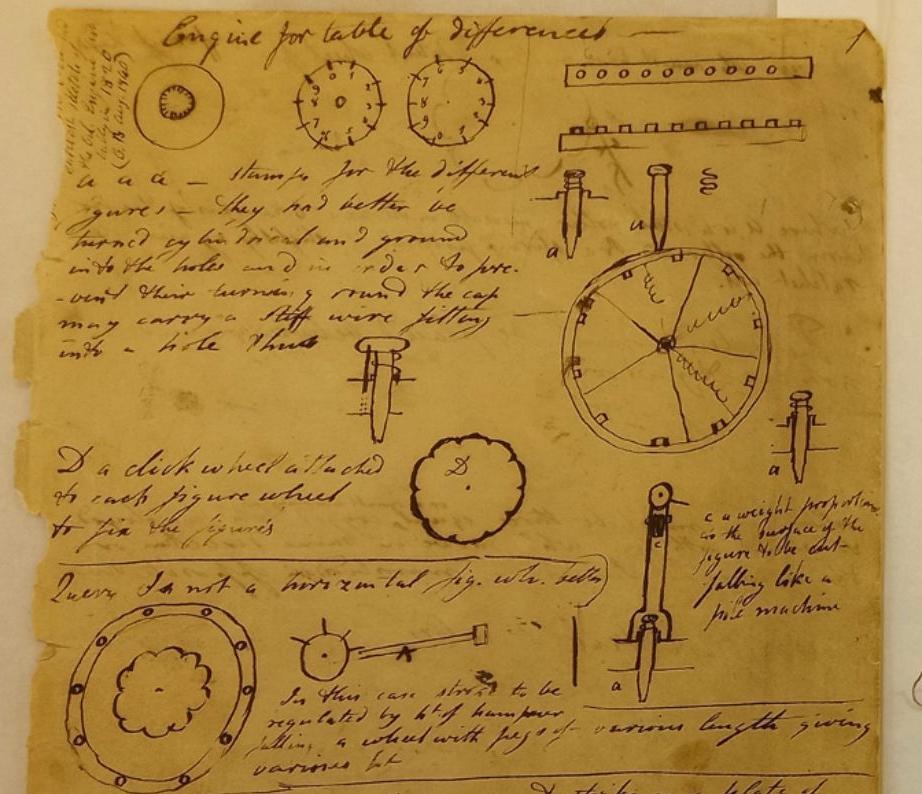 Engine for table of differences
1820
a a a — stamps for the different
figures — they had better be
turned cylindrical and ground
into the holes and in order to pre-
-vent their turning round the cap
may carry a stiff wire fitting
into a hole thus
a
a
a
D a click wheel attached
to each figure wheel
to fix the figures
D
c a weight proportion
as the surface of the
figure to be cut
falling like a
pile machine
c
a
Query Is not a horizontal fig. wh. better
In this case stroke to be
regulated by ht of hammer
falling, a wheel with pegs of various length giving
various ht
plate of